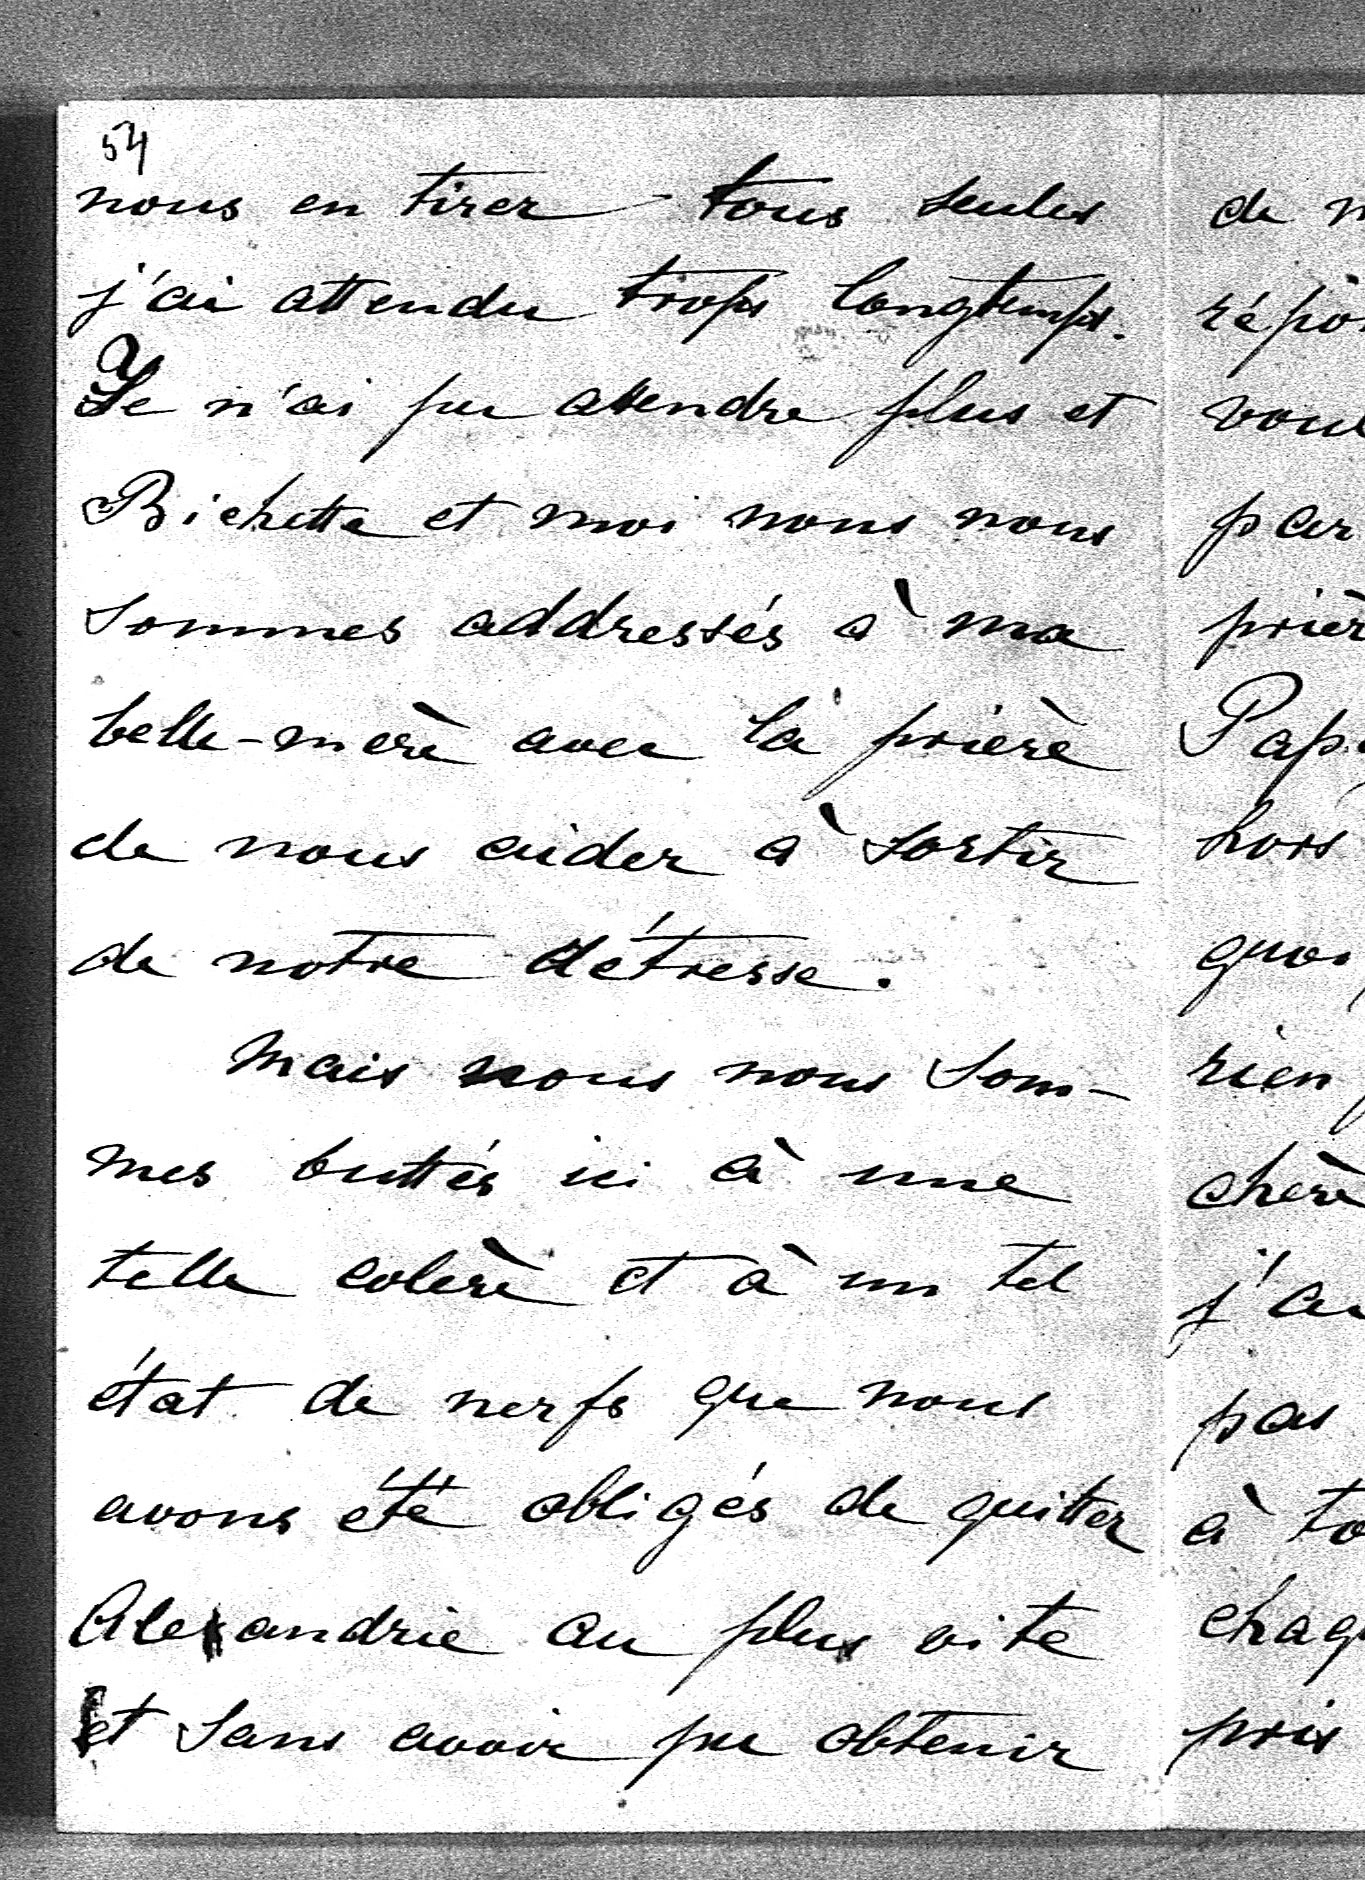 54
nous en tirer tous seules
j'ai attendu trops longtemps.
Je n'ai pu attendre plus et
Bichette et moi nous nous
sommes addressés à ma
belle-merè avec la prierè
de nous aider à sortir
de notre détresse.
Mais nous nous som-
mes buttés ici à une
telle colerè et à un tel
état de nerfs que nous
avons été obligés de quitter
Alexandrie au plus vite
et sans avoir pu obtenir
de
par
hors
rien
cherè
j'ai
pas
à
pris